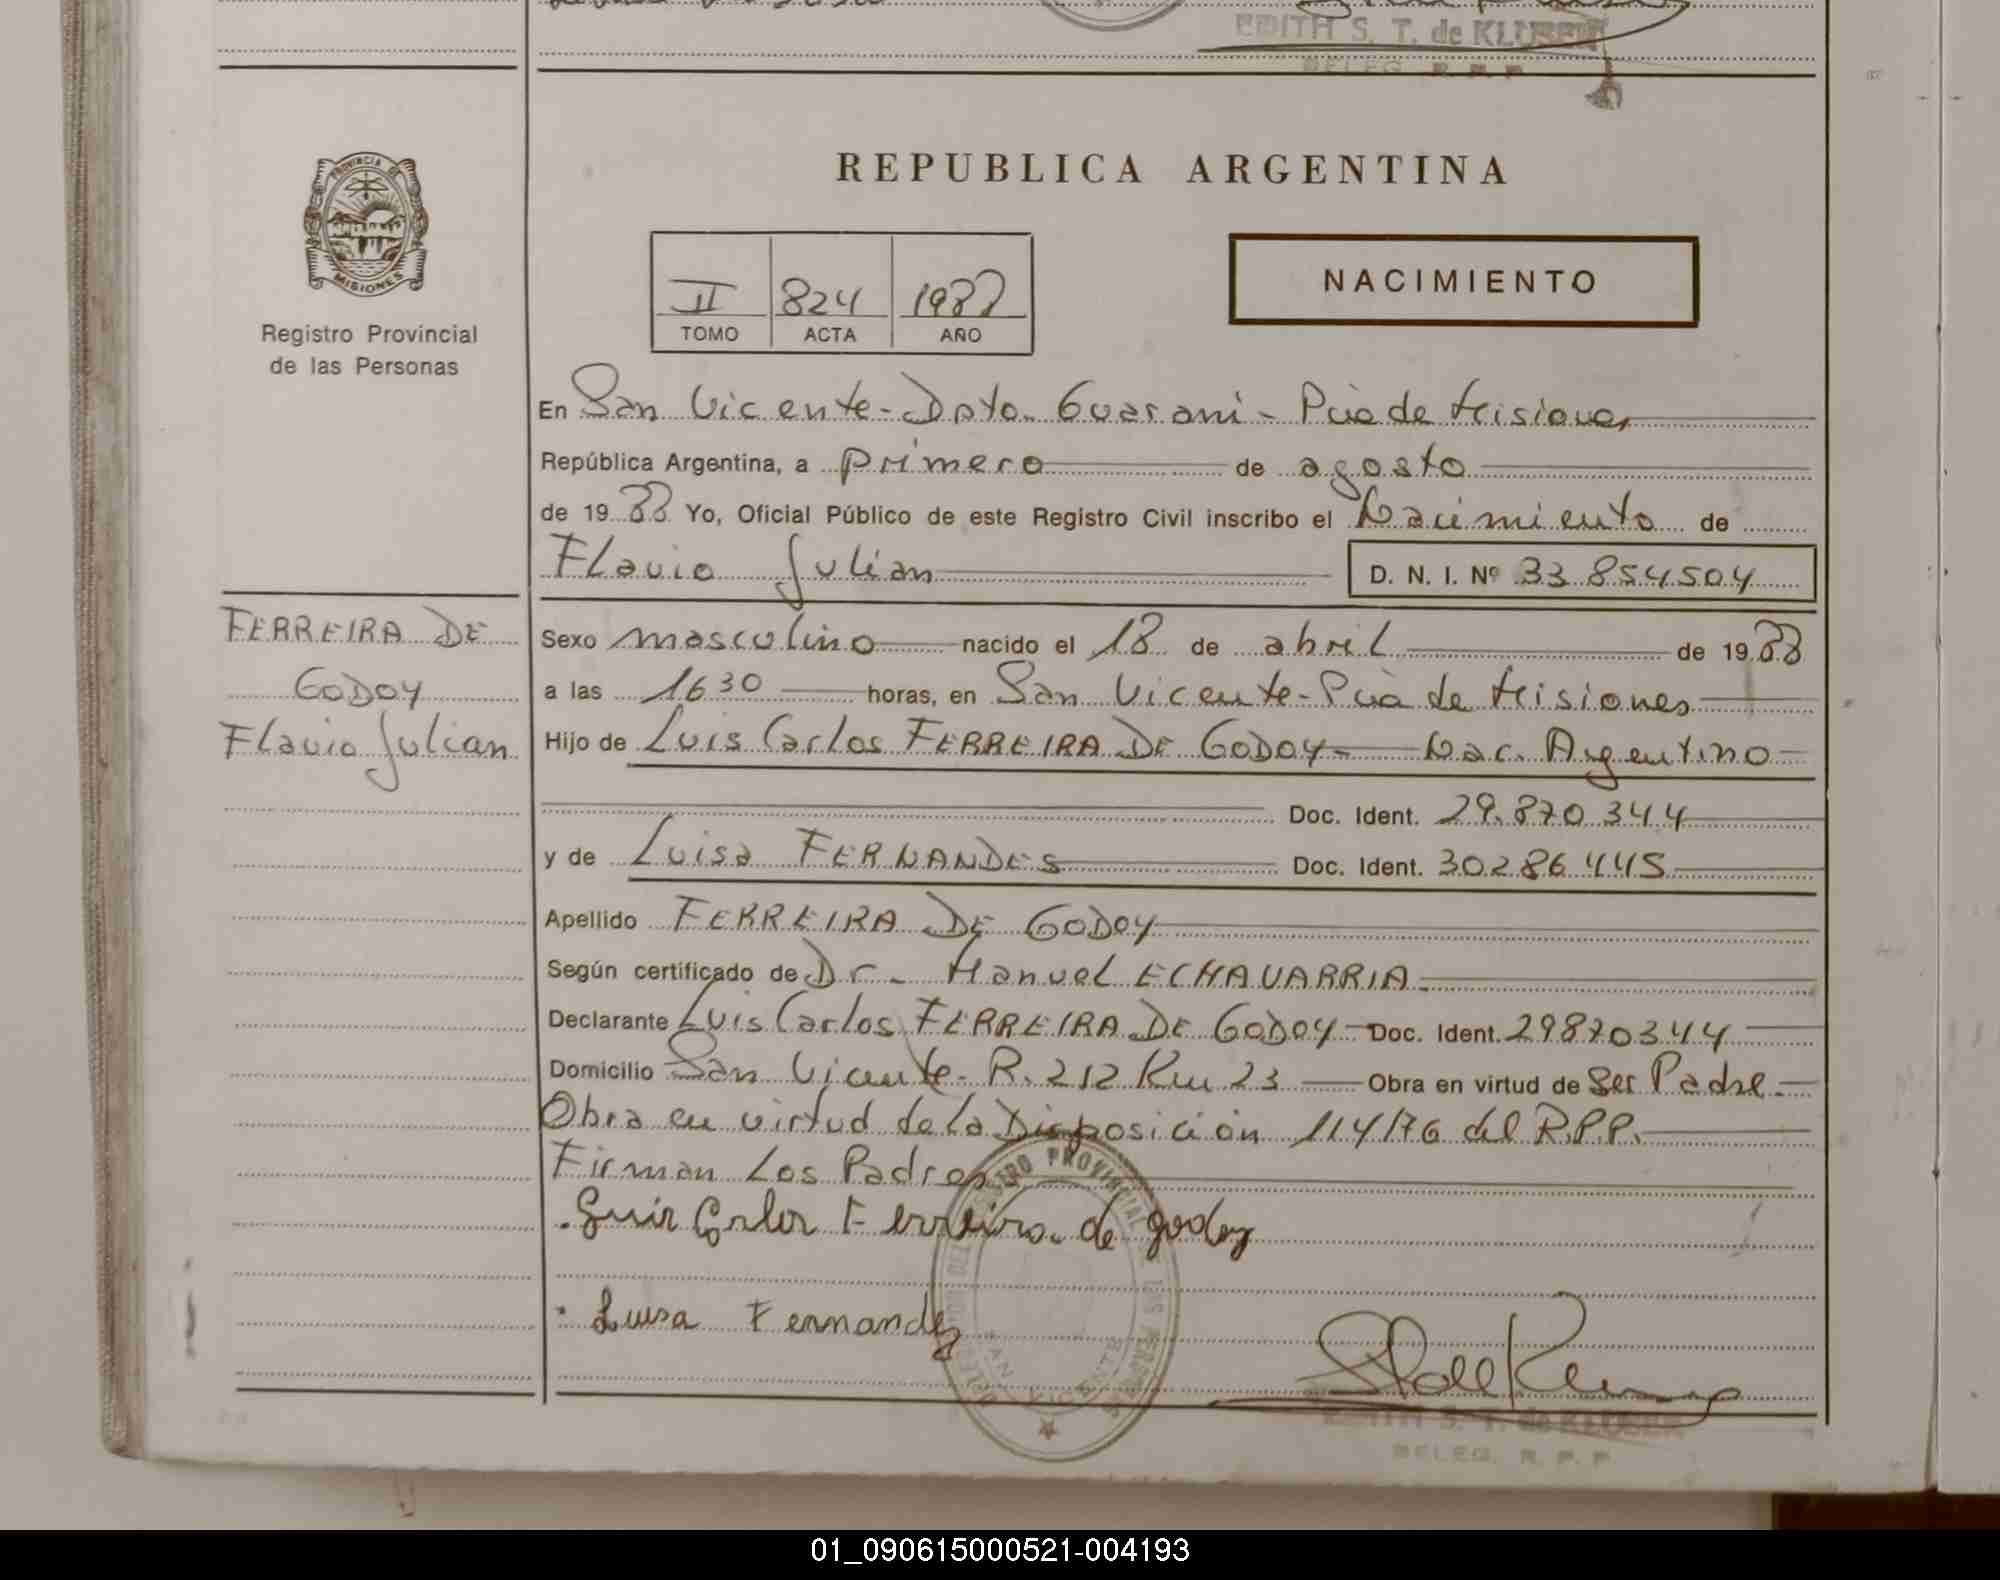 EDITH S. T. de KLUBER
DELEG. R. P. P.
REPUBLICA ARGENTINA
PROVINCIA DE
MISIONES
Registro Provincial
de las Personas
II 824 1988
TOMO ACTA AÑO
NACIMIENTO
En San Vicente - Dpto. Guarani - Pcia de Misiones
República Argentina, a primero de agosto
de 1988 Yo, Oficial Público de este Registro Civil inscribo el Nacimiento de
Flavio Julian D. N. I. Nº 33.854504
FERREIRA DE
GODOY
Flavio Julian
Sexo masculino nacido el 18 de abril de 1988
a las 16 30 horas, en San Vicente - Pcia de Misiones
Hijo de Luis Carlos FERREIRA DE GODOY - Nac. Argentino
Doc. Ident. 29.870.344
y de Luisa FERNANDES Doc. Ident. 30286445
Apellido FERREIRA DE GODOY
Según certificado de Dr. Manuel ECHAVARRIA
Declarante Luis Carlos FERREIRA DE GODOY - Doc. Ident. 29870344
Domicilio San Vicente - R. 212 Km 23 Obra en virtud de ser Padre.
Obra en virtud de la Disposición 114/76 del R.P.P.
Firman Los Padres
Luis Carlos Ferreira de godoy
Luisa Fernandez
SAN VICENTE
EDITH S. T. de KLUBER
DELEG. R. P. P.
01_090615000521-004193